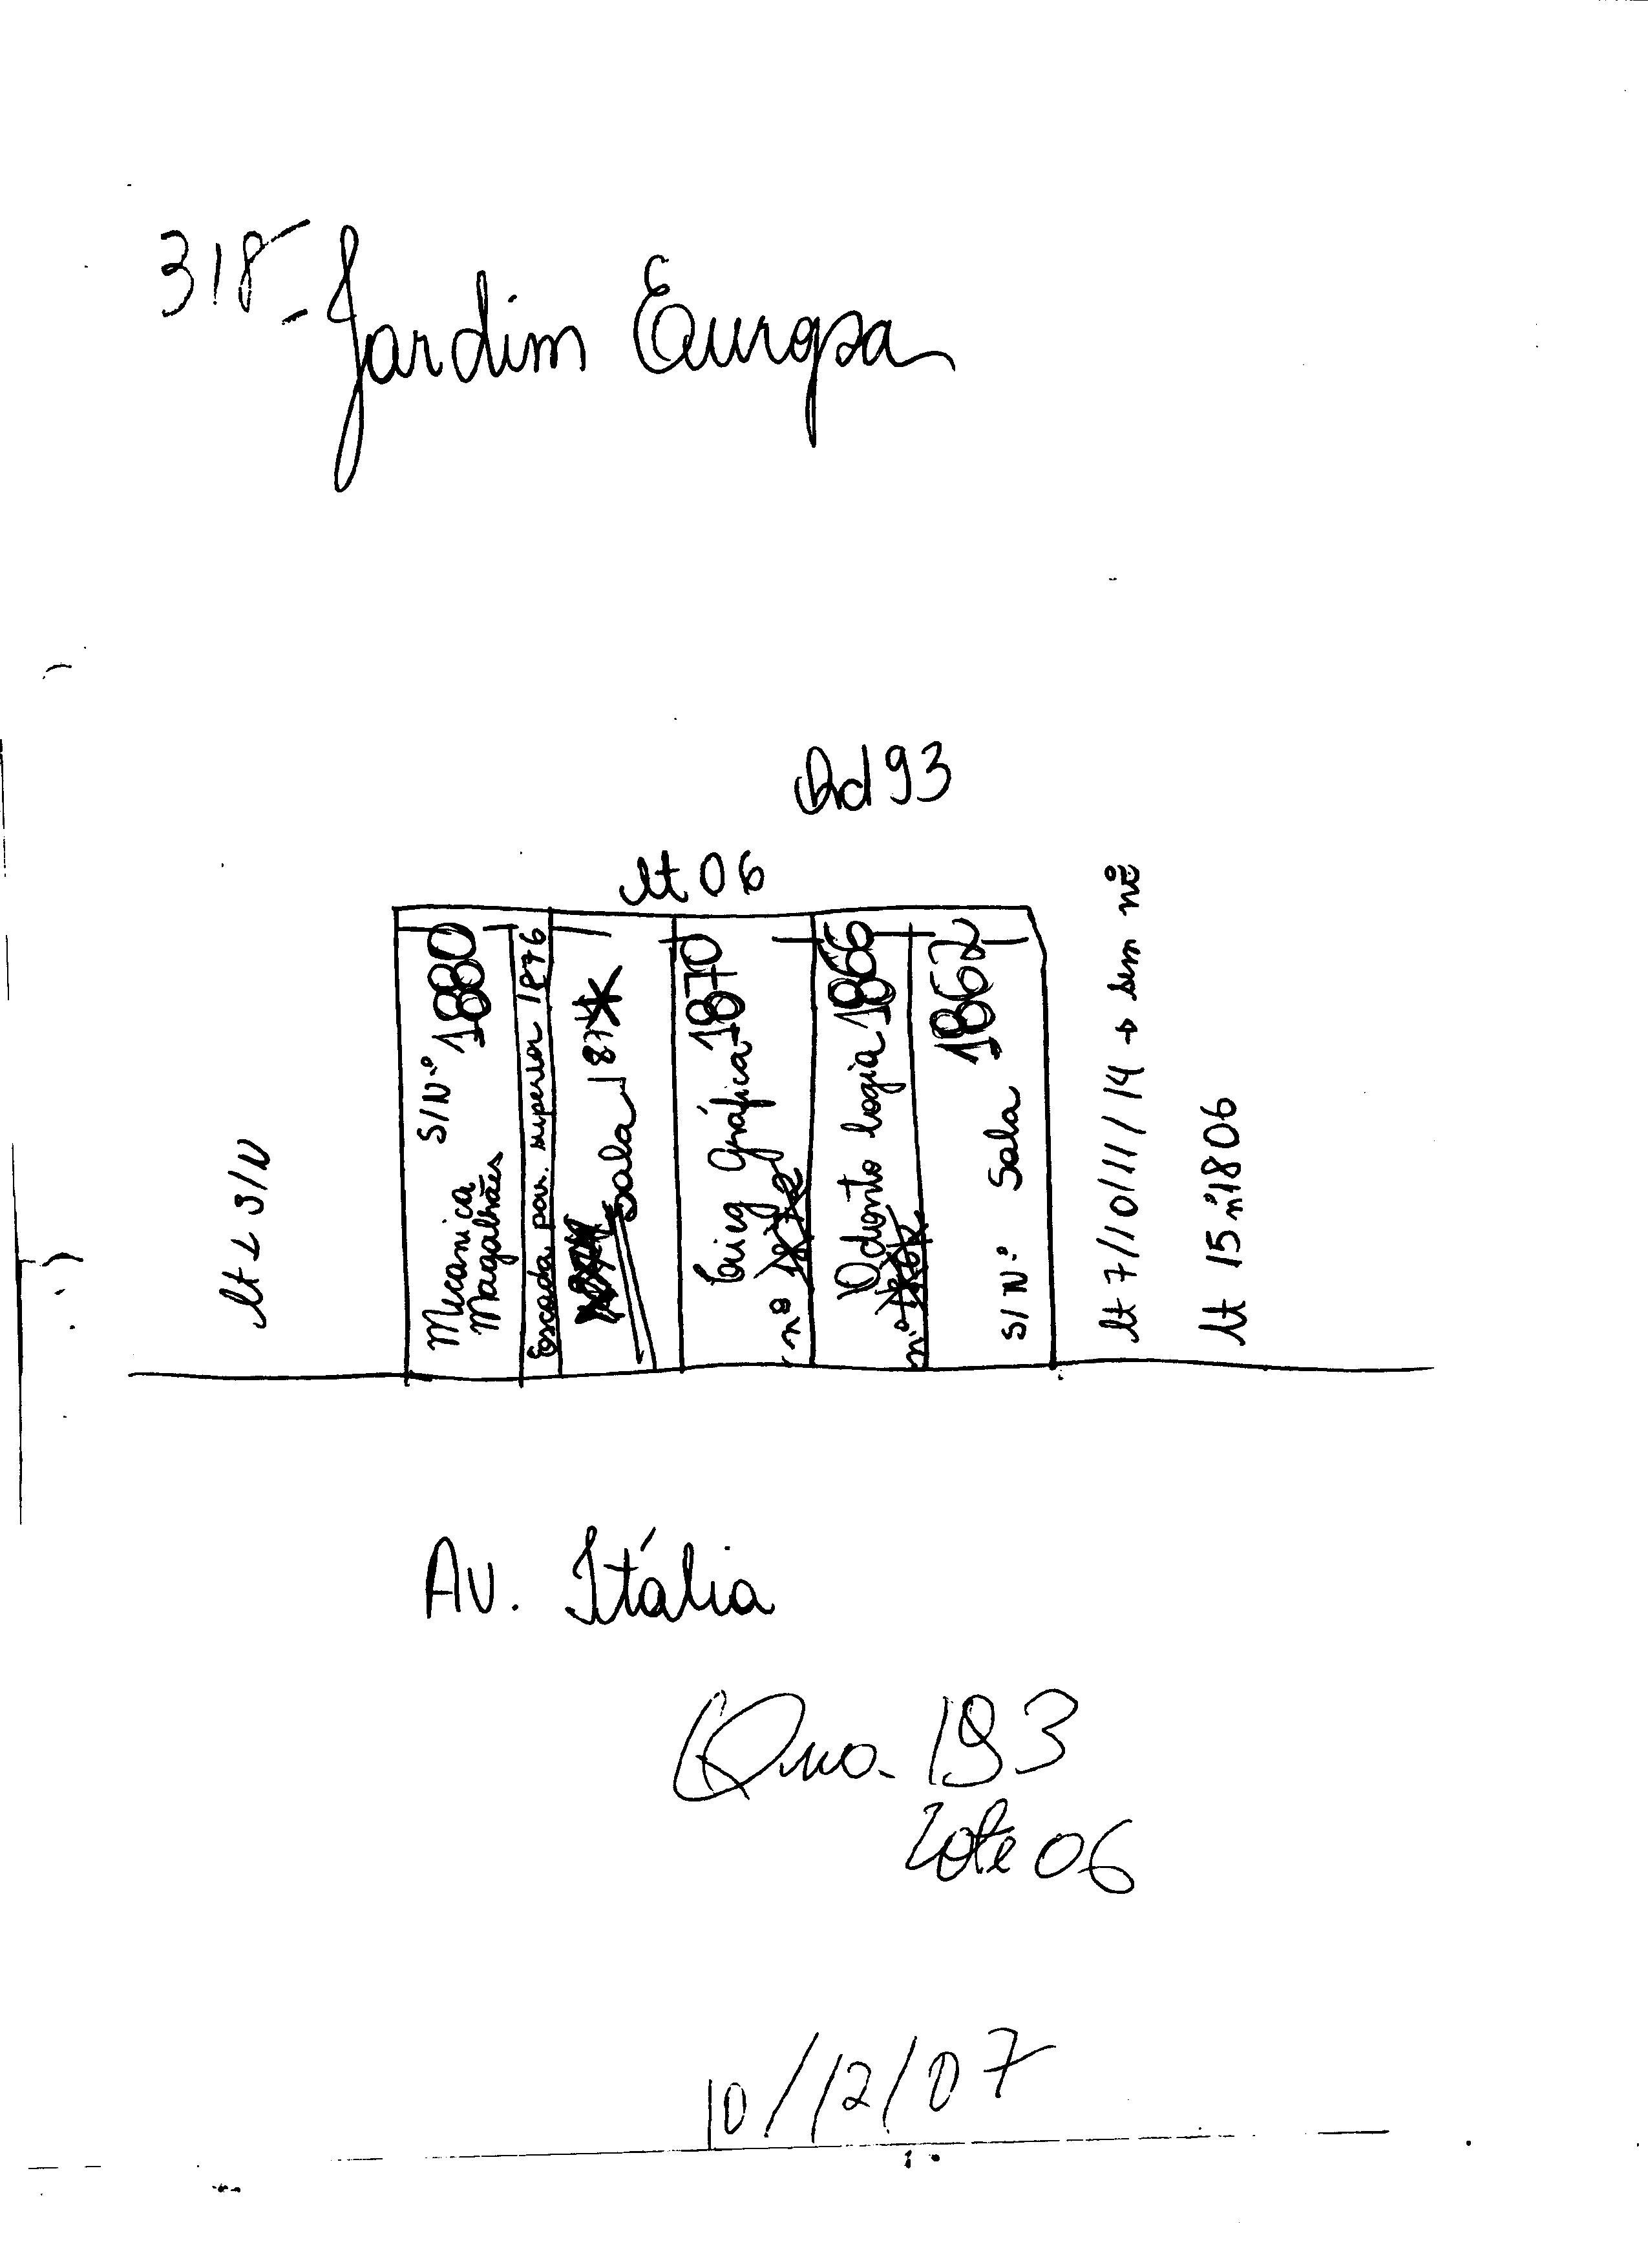 318- Jardim Europa
Qd 93
lt 06
lt S/N
Mecanica
Magalhães
S/Nº 1880
Escada pav. superior 1876
Sala 187
Gráfica 1870
nº
Odonto logia 1866
nº
S/Nº Sala 1862
lt 7/10/11/14 → sem nº
lt 15 nº 1806
Av. Itália
193
Lote 06
10/12/07